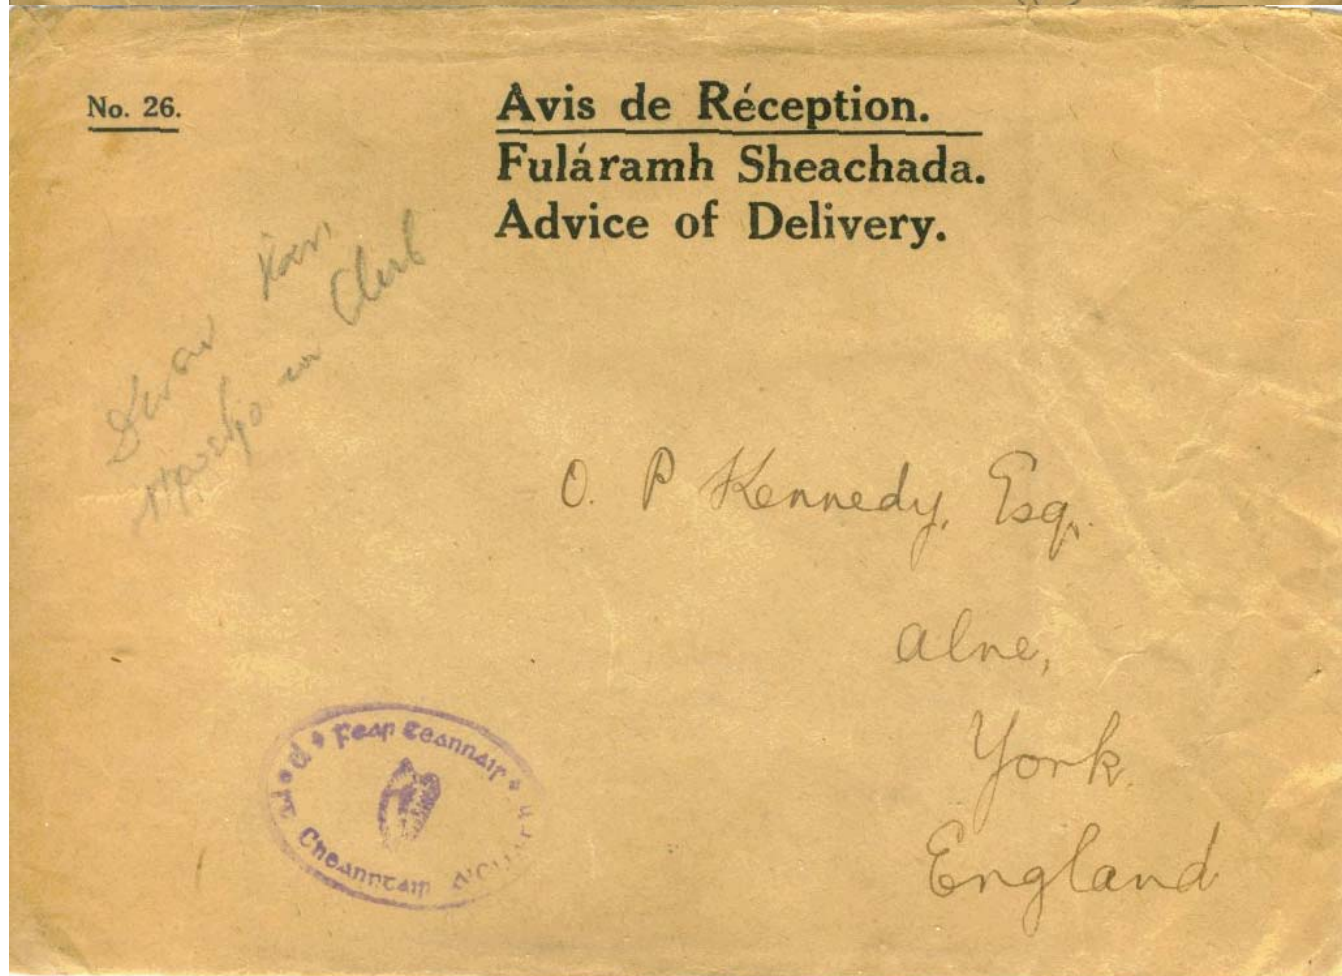 No. 26.
Avis de Réception.
Fuláramh Sheachada.
Advice of Delivery.
Club
O. P Kennedy, Esq.
Alne,
York.
England
Fear Ceannair
Cheanntair